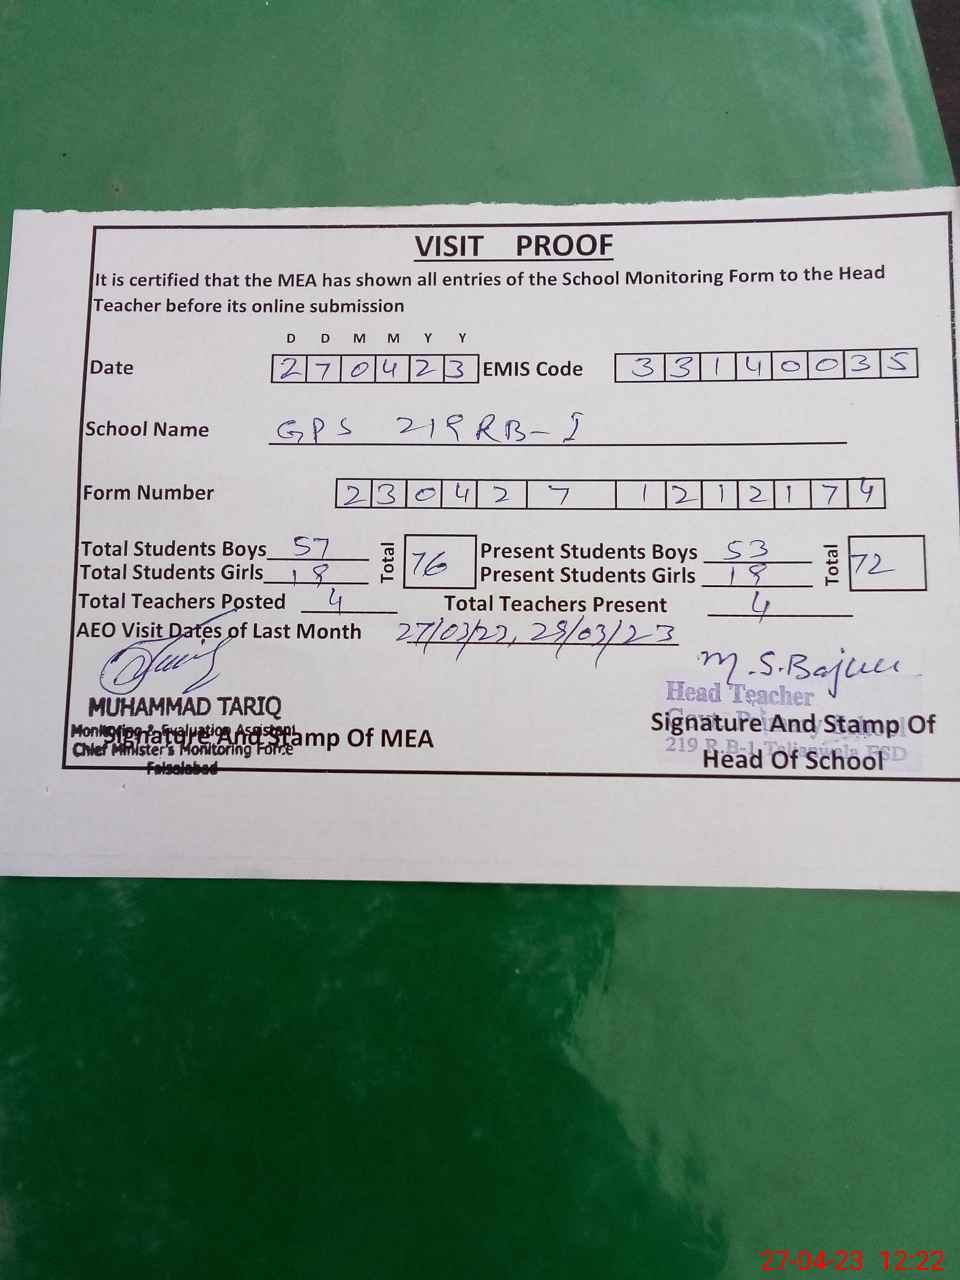 VISIT PROOF
It is certified that the MEA has shown all entries of the School Monitoring Form to the Head
Teacher before its online submission
D D M M Y Y
Date 2 7 0 4 2 3 EMIS Code 3 3 1 4 0 0 3 5
School Name GPS 219 RB-I
Form Number 2 3 0 4 2 7 1 2 1 2 1 7 4
Total Students Boys 57 Total 76 Present Students Boys 53 Total 72
Total Students Girls 19 Present Students Girls 19
Total Teachers Posted 4 Total Teachers Present 4
AEO Visit Dates of Last Month 27/03/23, 29/03/23
M.S.Bajwa
MUHAMMAD TARIQ
Monitoring & Evaluation Assistant
Chief Minister's Monitoring Force
Faisalabad
Signature And Stamp Of MEA
Head Teacher
Govt. Primary School
219 R.B-1 Talianwala FSD
Signature And Stamp Of
Head Of School
27-04-23 12:22